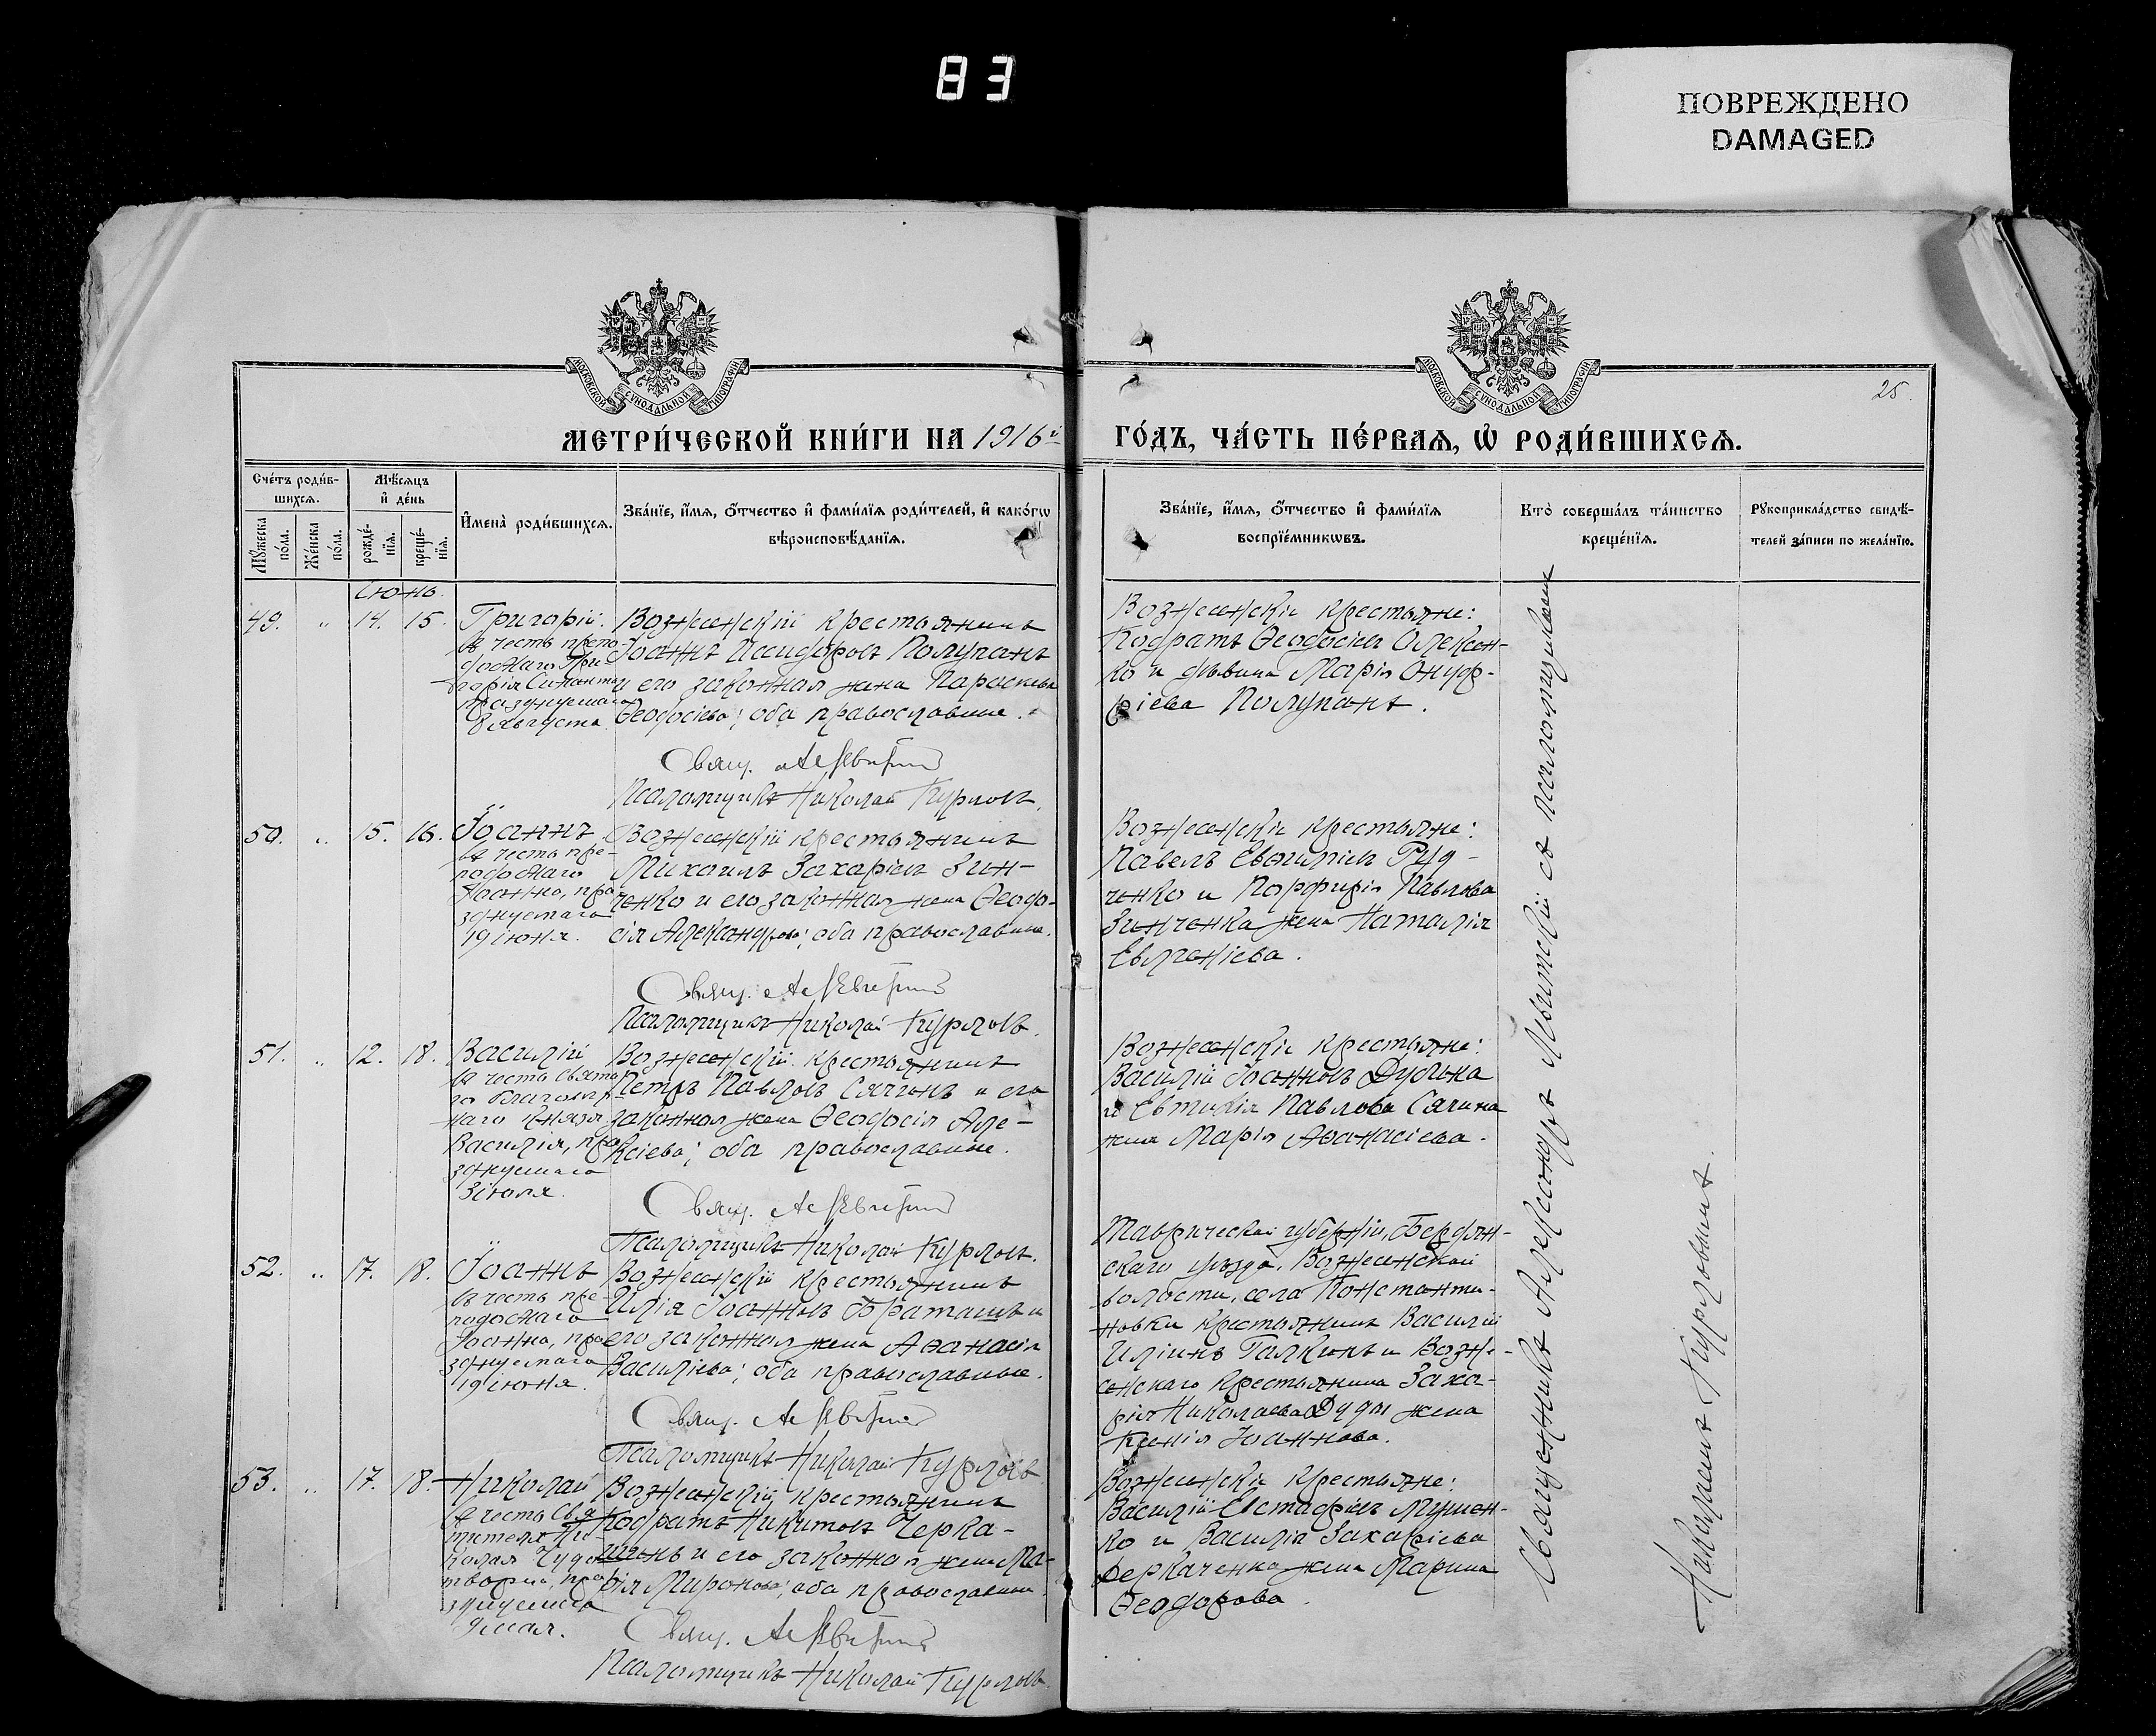 83
ПОВРЕЖДЕНО
DAMAGED
МОСКОВСКОЙ СѴНОДАЛЬНОЙ ТИПОГРАФІИ
МОСКОВСКОЙ СѴНОДАЛЬНОЙ ТИПОГРАФІИ
25.
МЕТРИ́ЧЕСКОЙ КНИ́ГИ НА 1916й
ГО́ДЪ, ЧА́СТЬ ПЕ́РВАѦ, Ѡ҆ РОДИ́ВШИХСѦ.
Сче́тъ роди́в-
шихсѧ.
Мѣ́сѧцъ
и҆ де́нь
Мꙋжеска
по́ла.
Же́нска
по́ла.
рожде́-
нїѧ.
креще́-
нїѧ.
И҆мена̀ роди́вшихсѧ.
Зва́нїе, и҆́мѧ, ѻ҆́тчество и҆ фами́лїѧ роди́телей, и҆ како́гѡ
вѣроисповѣ́данїѧ.
Зва́нїе, и҆́мѧ, ѻ҆́тчество и҆ фами́лїѧ
воспрїе́мникѡвъ.
Кто̀ соверша́лъ та́инство
креще́нїѧ.
Рꙋкоприкла́дство свидѣ́-
телей за́писи по жела́нїю.
Іюнь.
49. " 14. 15.
Григорій.
въ честь препо-
добнаго Гри-
горія Синаита
празднуемаго
8 Августа
Вознесенскій крестьянинъ
Іоаннъ Исидоровъ Полупанъ
и его законная жена Параскева
Ѳеодосіева; оба православные.
Свящ. А. Львитскій
Псаломщикъ Николай Курловъ.
Вознесенскіе крестьяне:
Кодратъ Ѳеодосіевъ Олексен-
ко и дѣвица Марія Онуф-
ріева Полупанъ.
50. " 15. 16.
Іоаннъ
въ честь пре-
подобнаго
Іоанна, пра
зднуемаго
19 іюня.
Вознесенскій крестьянинъ
Михаилъ Захаріевъ Зин-
ченко и его законная жена Ѳеодо-
сія Александрова; оба православные.
Свящ. А. Львитскій
Псаломщикъ Николай Курловъ.
Вознесенскіе крестьяне:
Павелъ Евѳиміевъ Руд-
ченко и Порфирія Павлова
Зинченка жена Наталія
Евгеніева.
51. " 12. 18.
Василій
въ честь свята
го благовѣр-
наго князя
Василія, пра
зднуемаго
3 іюля.
Вознесенскій крестьянинъ
Петръ Павловъ Сячинъ и его
законная жена Ѳеодосія Але-
ксіева; оба православные.
Свящ. А. Львитскій
Псаломщикъ Николай Курловъ.
Вознесенскіе крестьяне:
Василій Іоанновъ Дудка
и Евтихія Павлова Сячина
жена Марія Аѳанасіева.
52. " 17. 18.
Іоаннъ
въ честь пре-
подобнаго
Іоанна, пра
зднуемаго
19 іюня.
Вознесенскій крестьянинъ
Илія Іоанновъ Браташъ и
его законная жена Аѳанасія
Василіева; оба православные.
Свящ. А. Львитскій
Псаломщикъ Николай Курловъ
Таврической губерніи, Бердян-
скаго уѣзда, Вознесенской
волости, села Константи-
новки крестьянинъ Василій
Иліинъ Галкинъ и Возне-
сенскаго крестьянина Заха-
рія Николаева Дуды жена
Ксенія Іоаннова.
53. " 17. 18.
Николай
въ честь Свя
тителя Ни
колая Чудо
творца, пра
зднуемаго
9 мая.
Вознесенскій крестьянинъ
Кодратъ Никитовъ Черка-
шинъ и его законная жена Ма-
рія Миронова; оба православные.
Свящ. А. Львитскій
Псаломщикъ Николай Курловъ.
Вознесенскіе крестьяне:
Василій Евстафіевъ Мушен-
ко и Василія Захаріева
Деркаченка жена Марина
Ѳеодорова.
Священникъ Александръ Львитскій съ псаломщикомъ
Николаемъ Курловымъ.